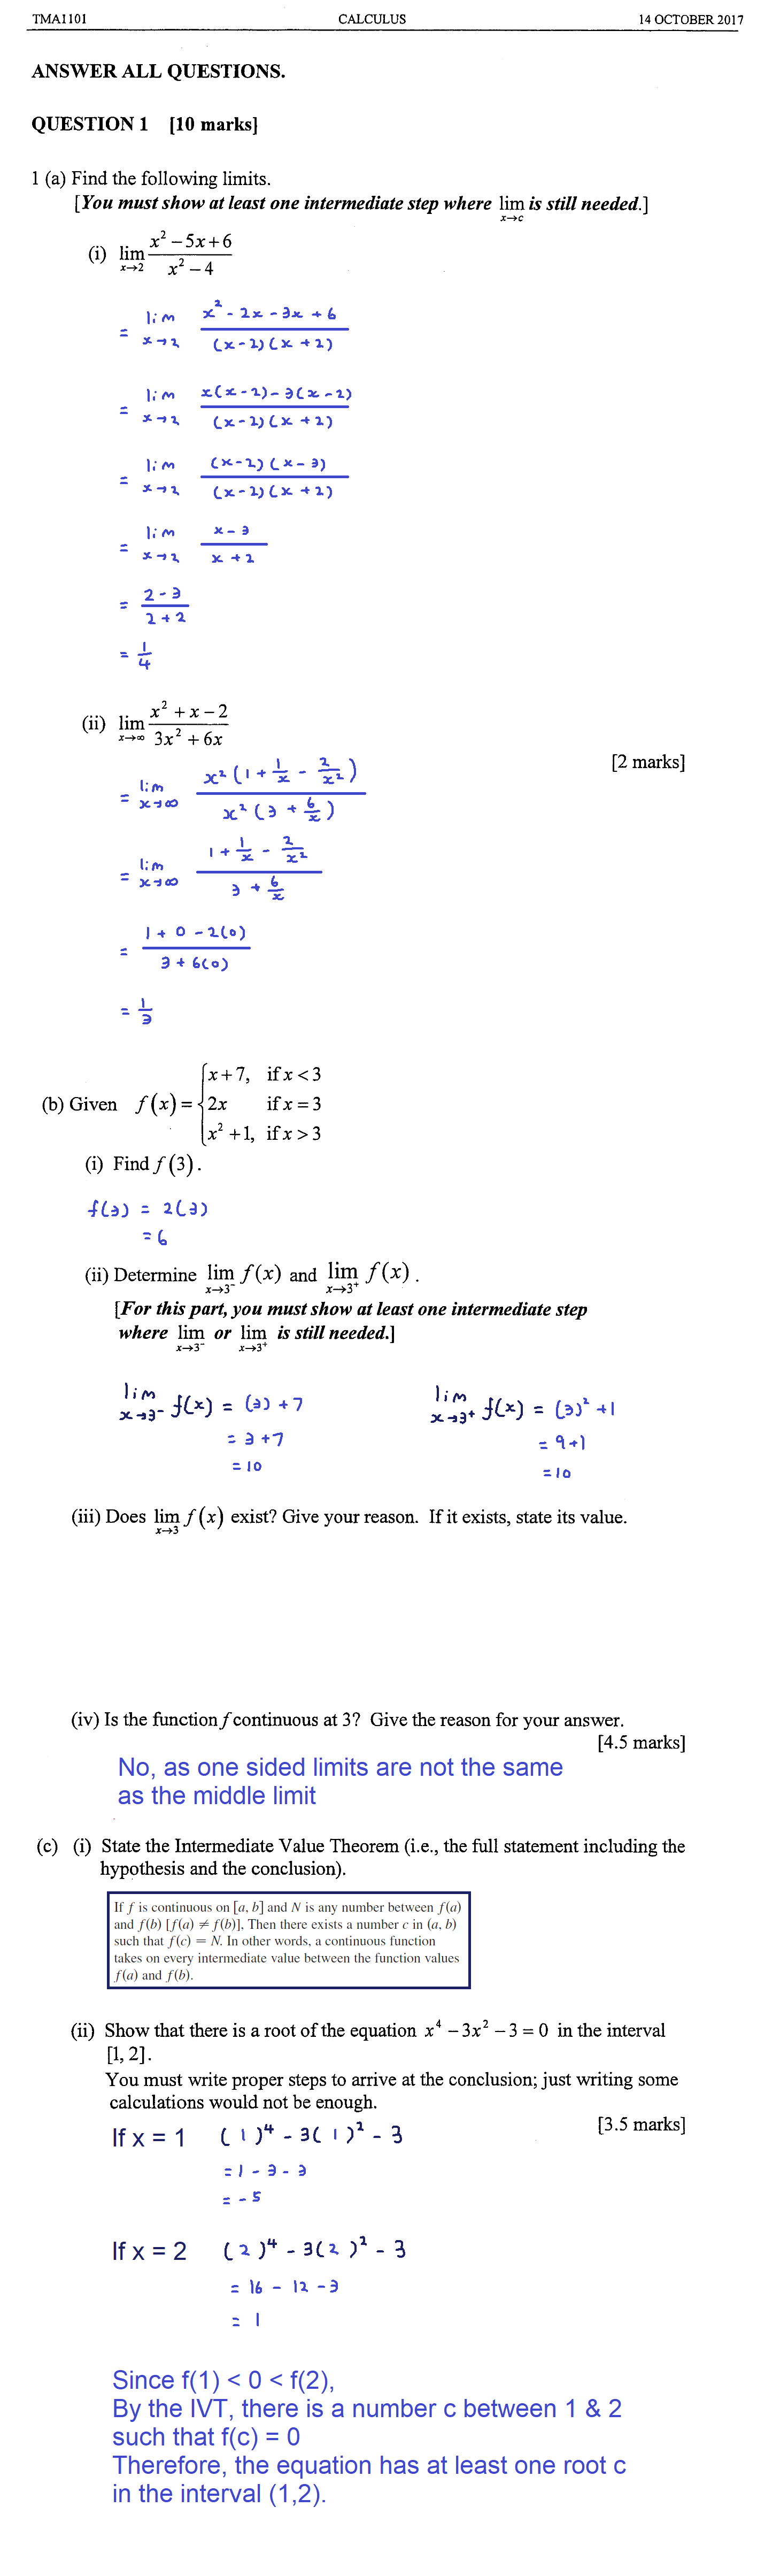 TMA1101 CALCULUS 14 OCTOBER 2017
ANSWER ALL QUESTIONS.
QUESTION 1 [10 marks]
1 (a) Find the following limits.
[You must show at least one intermediate step where lim x→c is still needed.]
(i) lim x→2 (x² – 5x + 6)/(x² – 4)
= lim x→2 (x² - 2x - 3x + 6)/((x-2)(x+2))
= lim x→2 (x(x-2) - 3(x-2))/((x-2)(x+2))
= lim x→2 ((x-2)(x-3))/((x-2)(x+2))
= lim x→2 (x-3)/(x+2)
= (2-3)/(2+2)
= 1/4
(ii) lim x→∞ (x² + x – 2)/(3x² + 6x)
[2 marks]
= lim x→∞ (x²(1 + 1/x - 2/x²))/(x²(3 + 6/x))
= lim x→∞ (1 + 1/x - 2/x²)/(3 + 6/x)
= (1 + 0 - 2(0))/(3 + 6(0))
= 1/3
(b) Given f(x) = { x + 7, if x < 3
2x if x = 3
x² + 1, if x > 3
(i) Find f(3).
f(3) = 2(3)
= 6
(ii) Determine lim x→3⁻ f(x) and lim x→3⁺ f(x).
[For this part, you must show at least one intermediate step
where lim x→3⁻ or lim x→3⁺ is still needed.]
lim x→3⁻ f(x) = (3) + 7 lim x→3⁺ f(x) = (3)² + 1
= 3 + 7 = 9 + 1
= 10 = 10
(iii) Does lim x→3 f(x) exist? Give your reason. If it exists, state its value.
(iv) Is the function f continuous at 3? Give the reason for your answer.
[4.5 marks]
No, as one sided limits are not the same
as the middle limit
(c) (i) State the Intermediate Value Theorem (i.e., the full statement including the
hypothesis and the conclusion).
If f is continuous on [a, b] and N is any number between f(a)
and f(b) [f(a) ≠ f(b)], Then there exists a number c in (a, b)
such that f(c) = N. In other words, a continuous function
takes on every intermediate value between the function values
f(a) and f(b).
(ii) Show that there is a root of the equation x⁴ – 3x² – 3 = 0 in the interval
[1, 2].
You must write proper steps to arrive at the conclusion; just writing some
calculations would not be enough.
[3.5 marks]
If x = 1 (1)⁴ - 3(1)² - 3
= 1 - 3 - 3
= -5
If x = 2 (2)⁴ - 3(2)² - 3
= 16 - 12 - 3
= 1
Since f(1) < 0 < f(2),
By the IVT, there is a number c between 1 & 2
such that f(c) = 0
Therefore, the equation has at least one root c
in the interval (1,2).